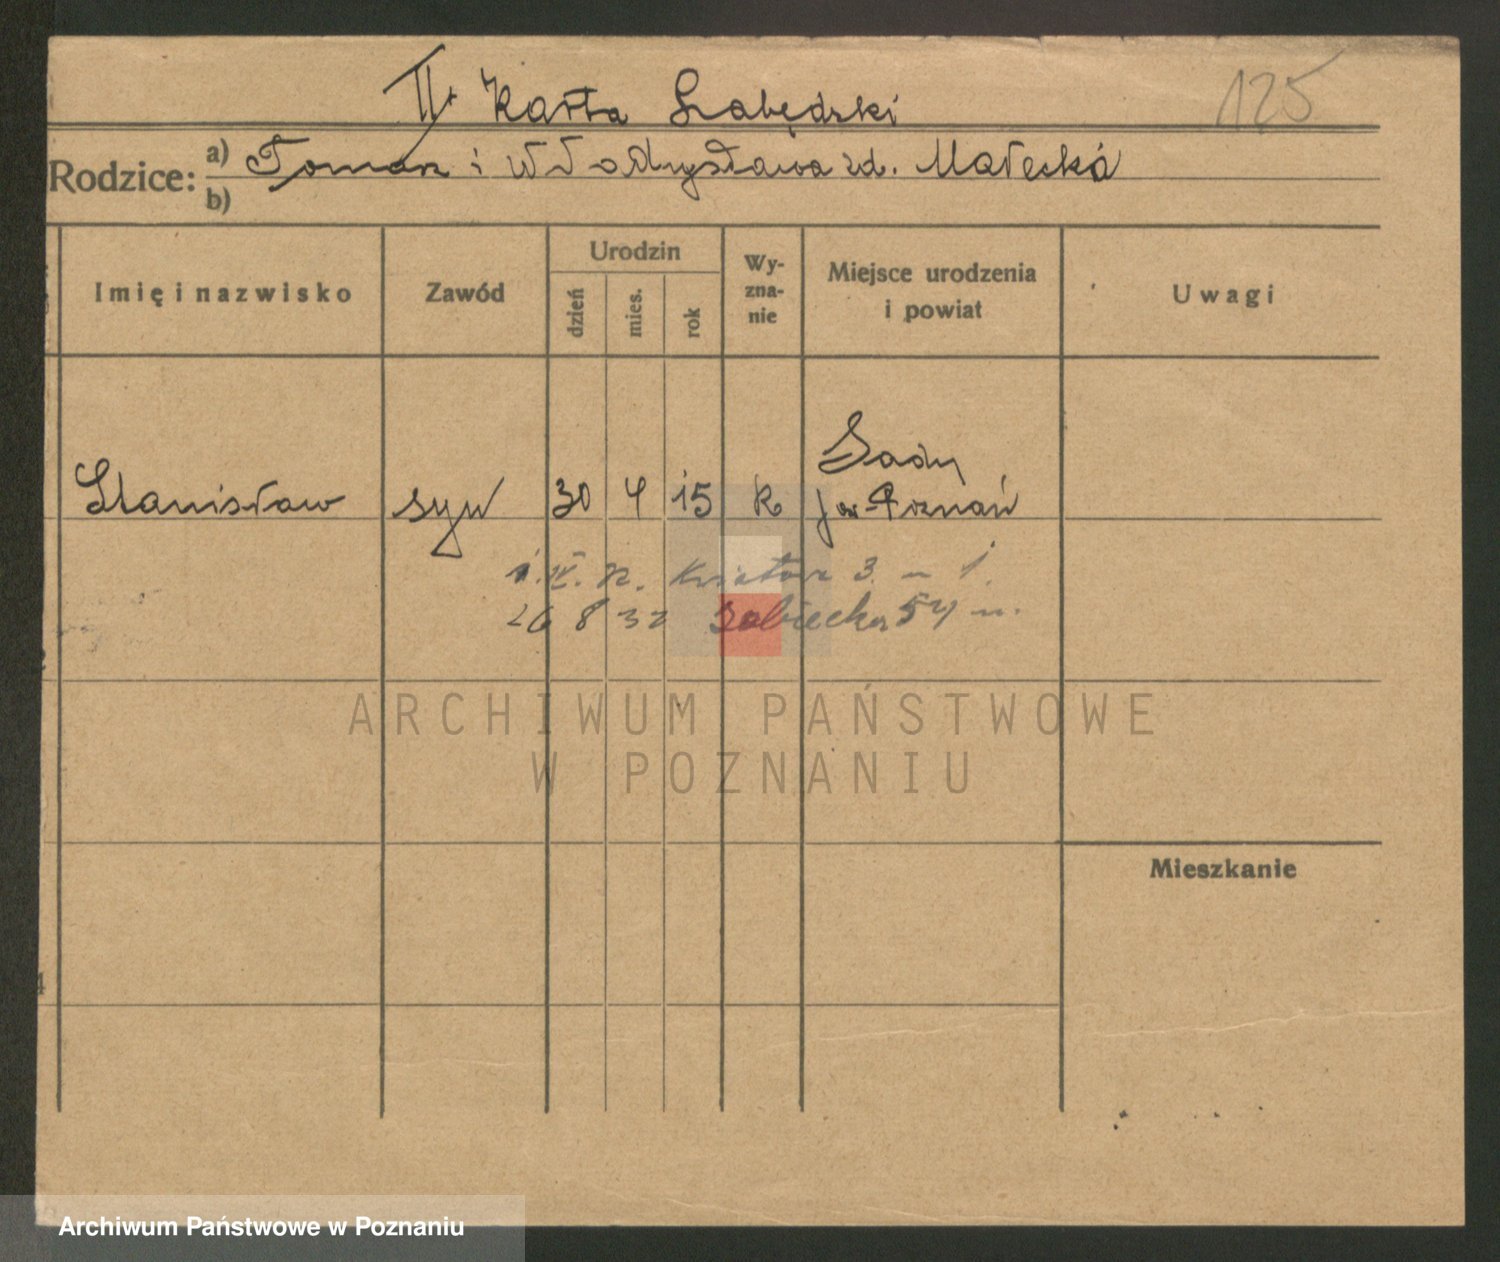 II. Karta Łabędzki
125
Rodzice: a) Tomasz i Władysława zd. Małecka
b)
Imię i nazwisko
Zawód
Urodzin
dzień
mies.
rok
Wy-
zna-
nie
Miejsce urodzenia
i powiat
Uwagi
Stanisław syn 30 4 15 k Sady
pow. Poznań
1. IV. 3 1
26 8 32 54
ARCHIWUM PAŃSTWOWE
W POZNANIU
Mieszkanie
4
Archiwum Państwowe w Poznaniu